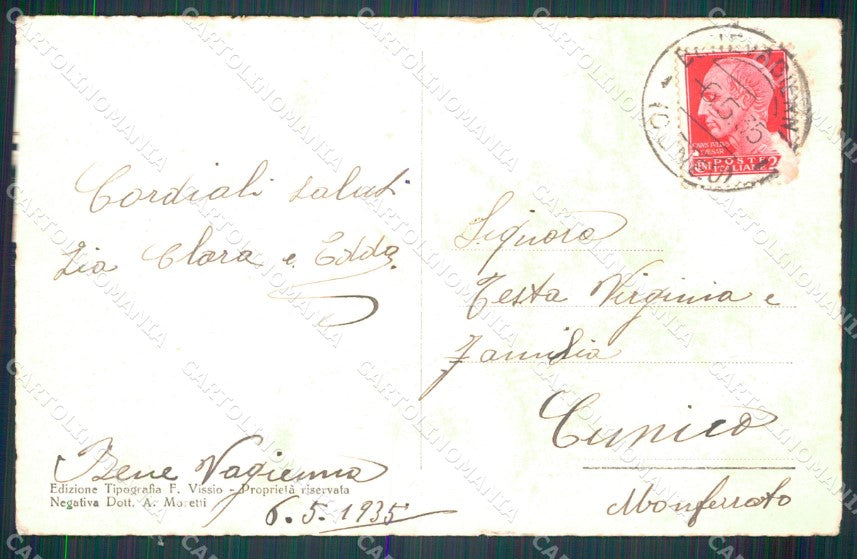 Cordiali saluti
Zia Clara e Edda
Bene Vagienna
6.5.1935
Edizione Tipografia F. Vissio - Proprietà riservata
Negativa Dott. A. Moretti
BENEVAGIENNA
6.5.35
(CUNEO)
POSTE
ITALIANE
Signora
Testa Virginia e
Familia
Cunico
Monferrato
CARTOLINOMANIA